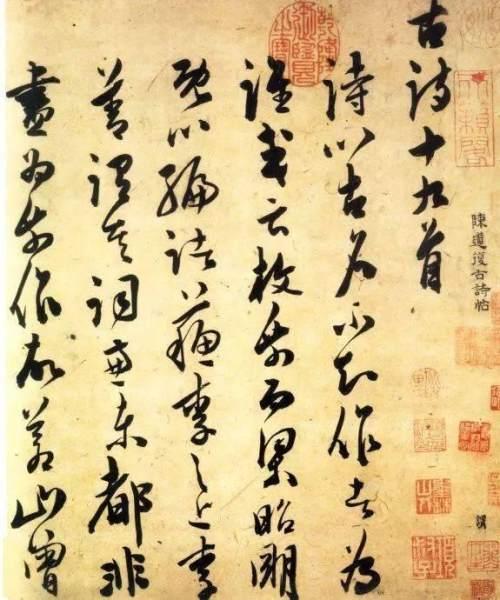 陳道復古詩帖
古詩十九首
詩以古名不知作者為
誰或云枚乘而梁昭明
既以編諸蘇李之上李
善謂其詞兼東都非
盡為乘作故蒼山曾